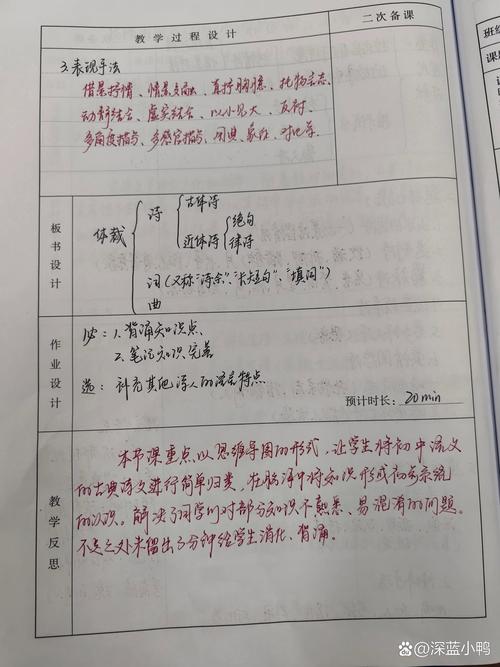 教学过程设计
二次备课
3.表现手法
借景抒情、情景交融、直抒胸臆、托物言志、
动静结合、虚实结合、以小见大、反衬、
多角度描写、多感官描写、用典、象征、对比等。
板书设计
体裁
诗
古体诗
近体诗
绝句
律诗
词(又称"诗余"、"长短句"、"填词")
曲
作业设计
必:1.背诵知识点、
2.笔记知识完善
选:补充其他诗人的流派特点
预计时长:20min
教学反思
本节课重点以思维导图的形式,让学生将初中语文
的古典诗文进行简单归类,在脑海中将知识形成初步系统
的认识。解决了同学们对部分知识不熟悉、易混淆的问题。
不足之处未留出多分钟给学生消化、背诵。
班级
课
@深蓝小鸭